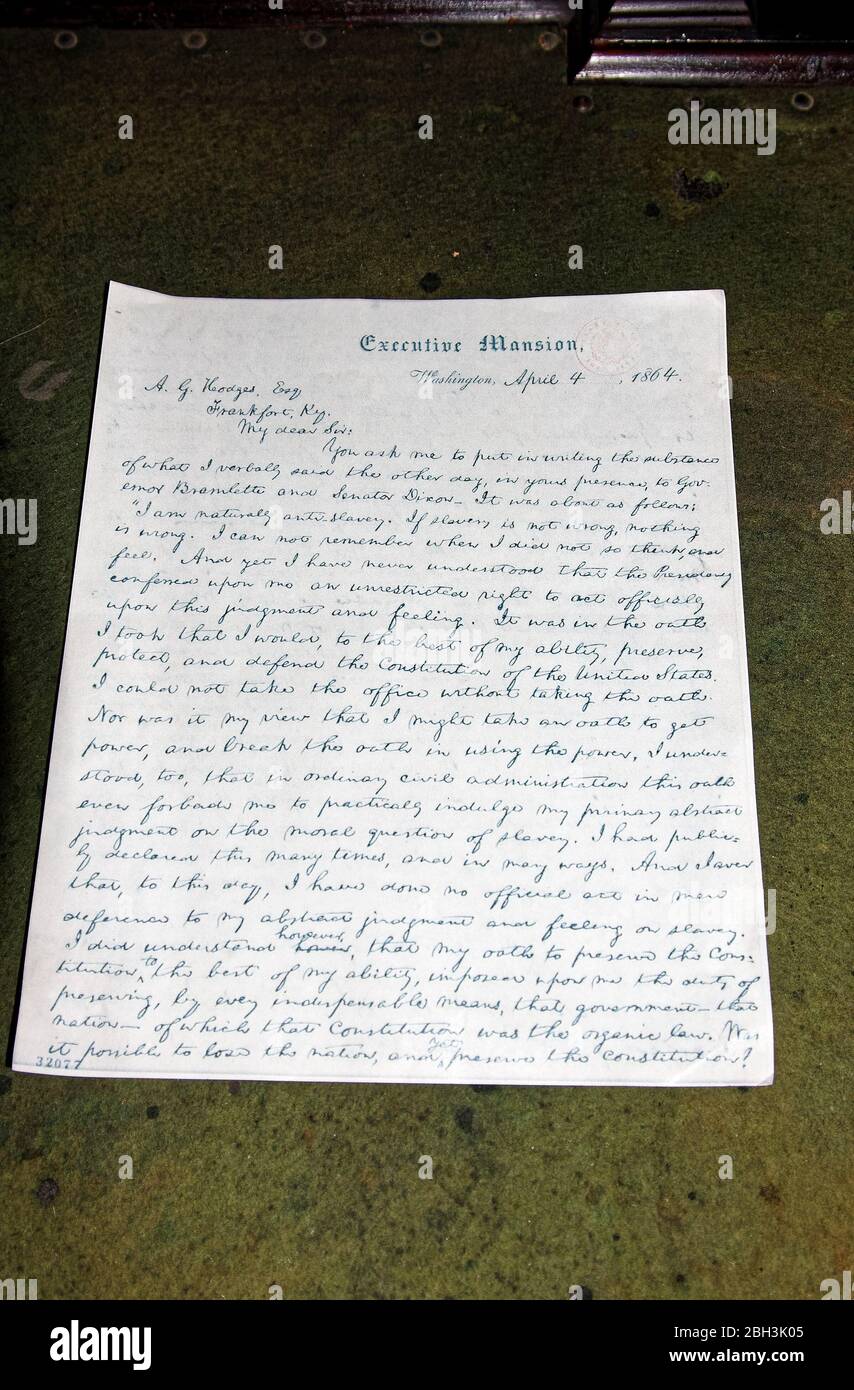 Executive Mansion,
Washington, April 4, 1864.
A. G. Hodges, Esq
Frankfort, Ky.
My dear Sir:
You ask me to put in writing the substance
of what I verbally said the other day, in your presence, to Gov-
ernor Bramlette and Senator Dixon— It was about as follows:
"I am naturally anti-slavery. If slavery is not wrong, nothing
is wrong. I can not remember when I did not so think, and
feel. And yet I have never understood that the Presidency
conferred upon me an unrestricted right to act officially
upon this judgment and feeling. It was in the oath
I took that I would, to the best of my ability, preserve,
protect, and defend the Constitution of the United States.
I could not take the office without taking the oath.
Nor was it my view that I might take an oath to get
power, and break the oath in using the power. I under-
stood, too, that in ordinary civil administration this oath
even forbade me to practically indulge my primary abstract
judgment on the moral question of slavery. I had public-
ly declared this many times, and in many ways. And I aver
that, to this day, I have done no official act in mere
deference to my abstract judgment and feeling on slavery.
I did understand however, that my oath to preserve the Cons-
titution to the best of my ability, imposed upon me the duty of
preserving, by every indispensable means, that government— that
nation— of which that Constitution was the organic law. Was
it possible to lose the nation, and yet preserve the Constitution?
32077
alamy
Image ID: 2BH3K05
www.alamy.com